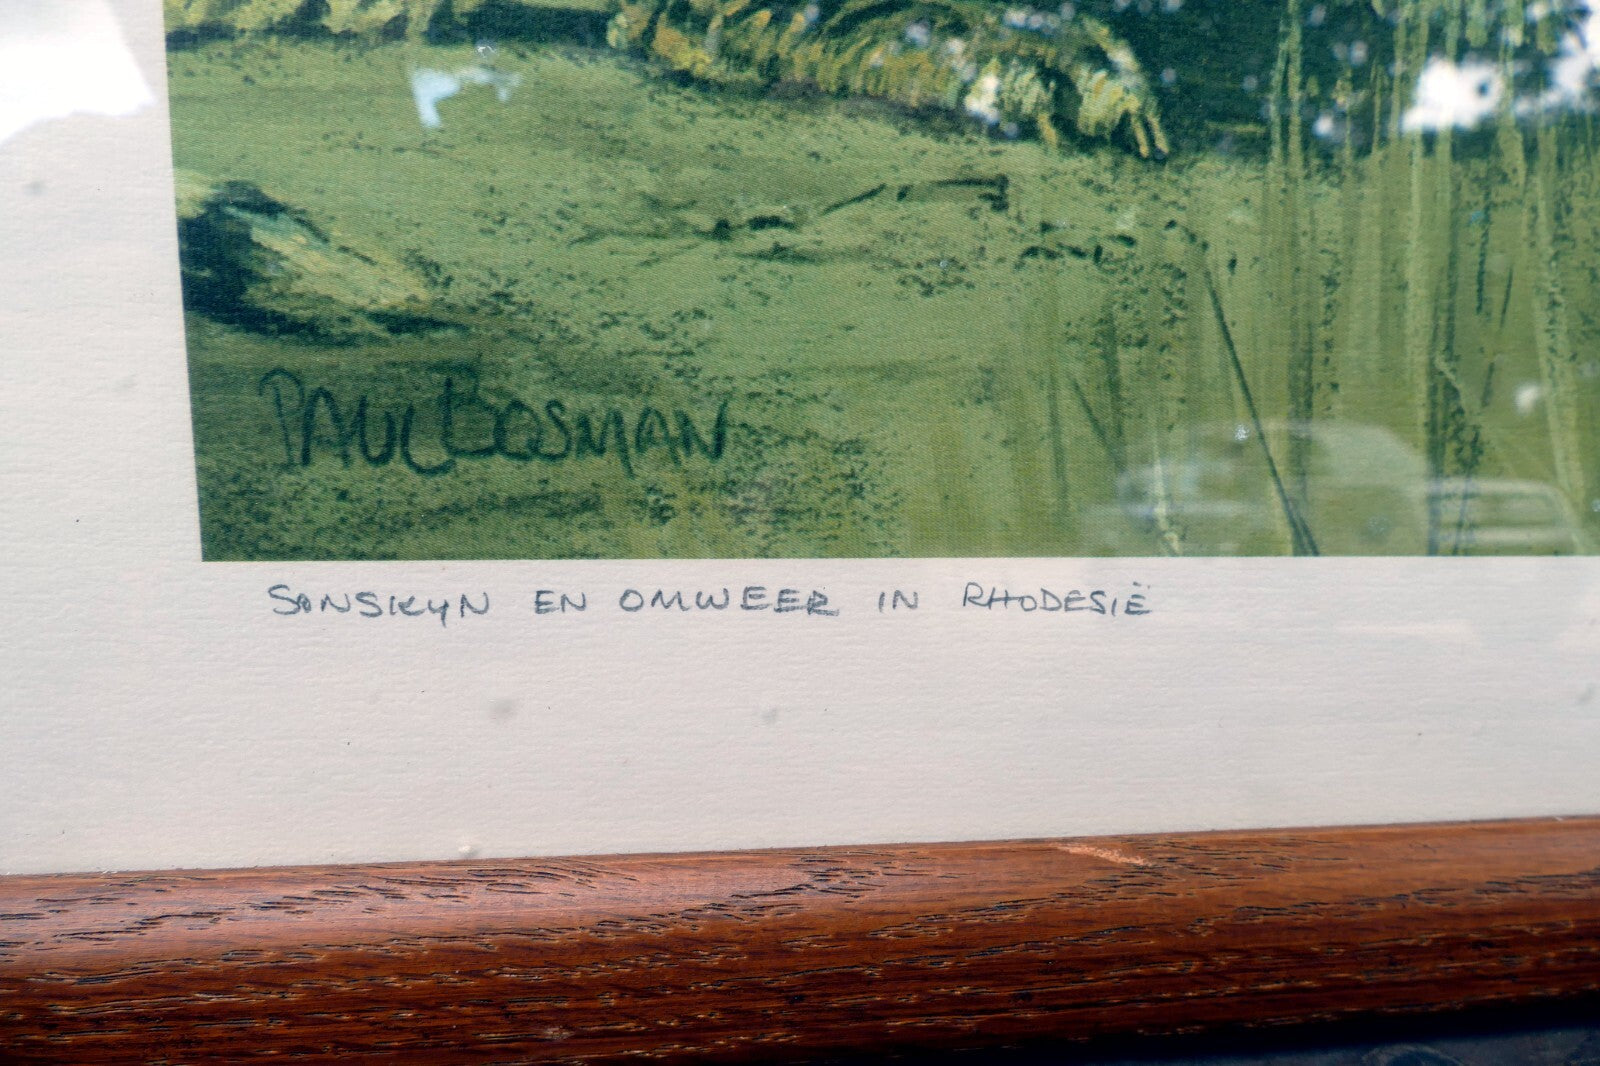 PAUL BOSMAN
SONSKYN EN OMWEER IN RHODESIË